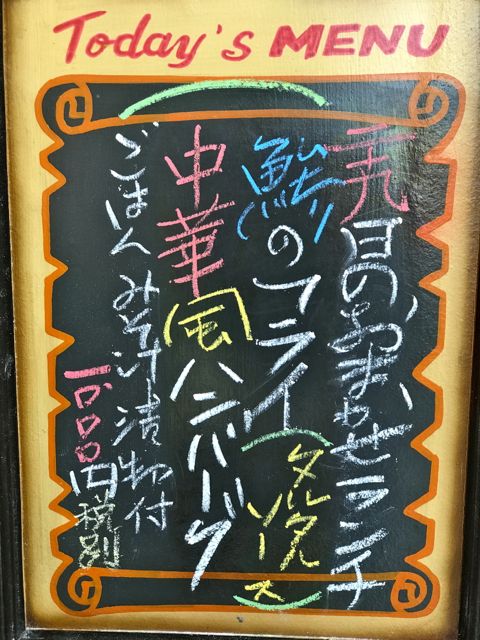 Today's MENU
日のおまかせランチ
のフライ(タルタルソース)
中華風ハンバーグ
ごはん みそ汁 漬物付
1000円税別